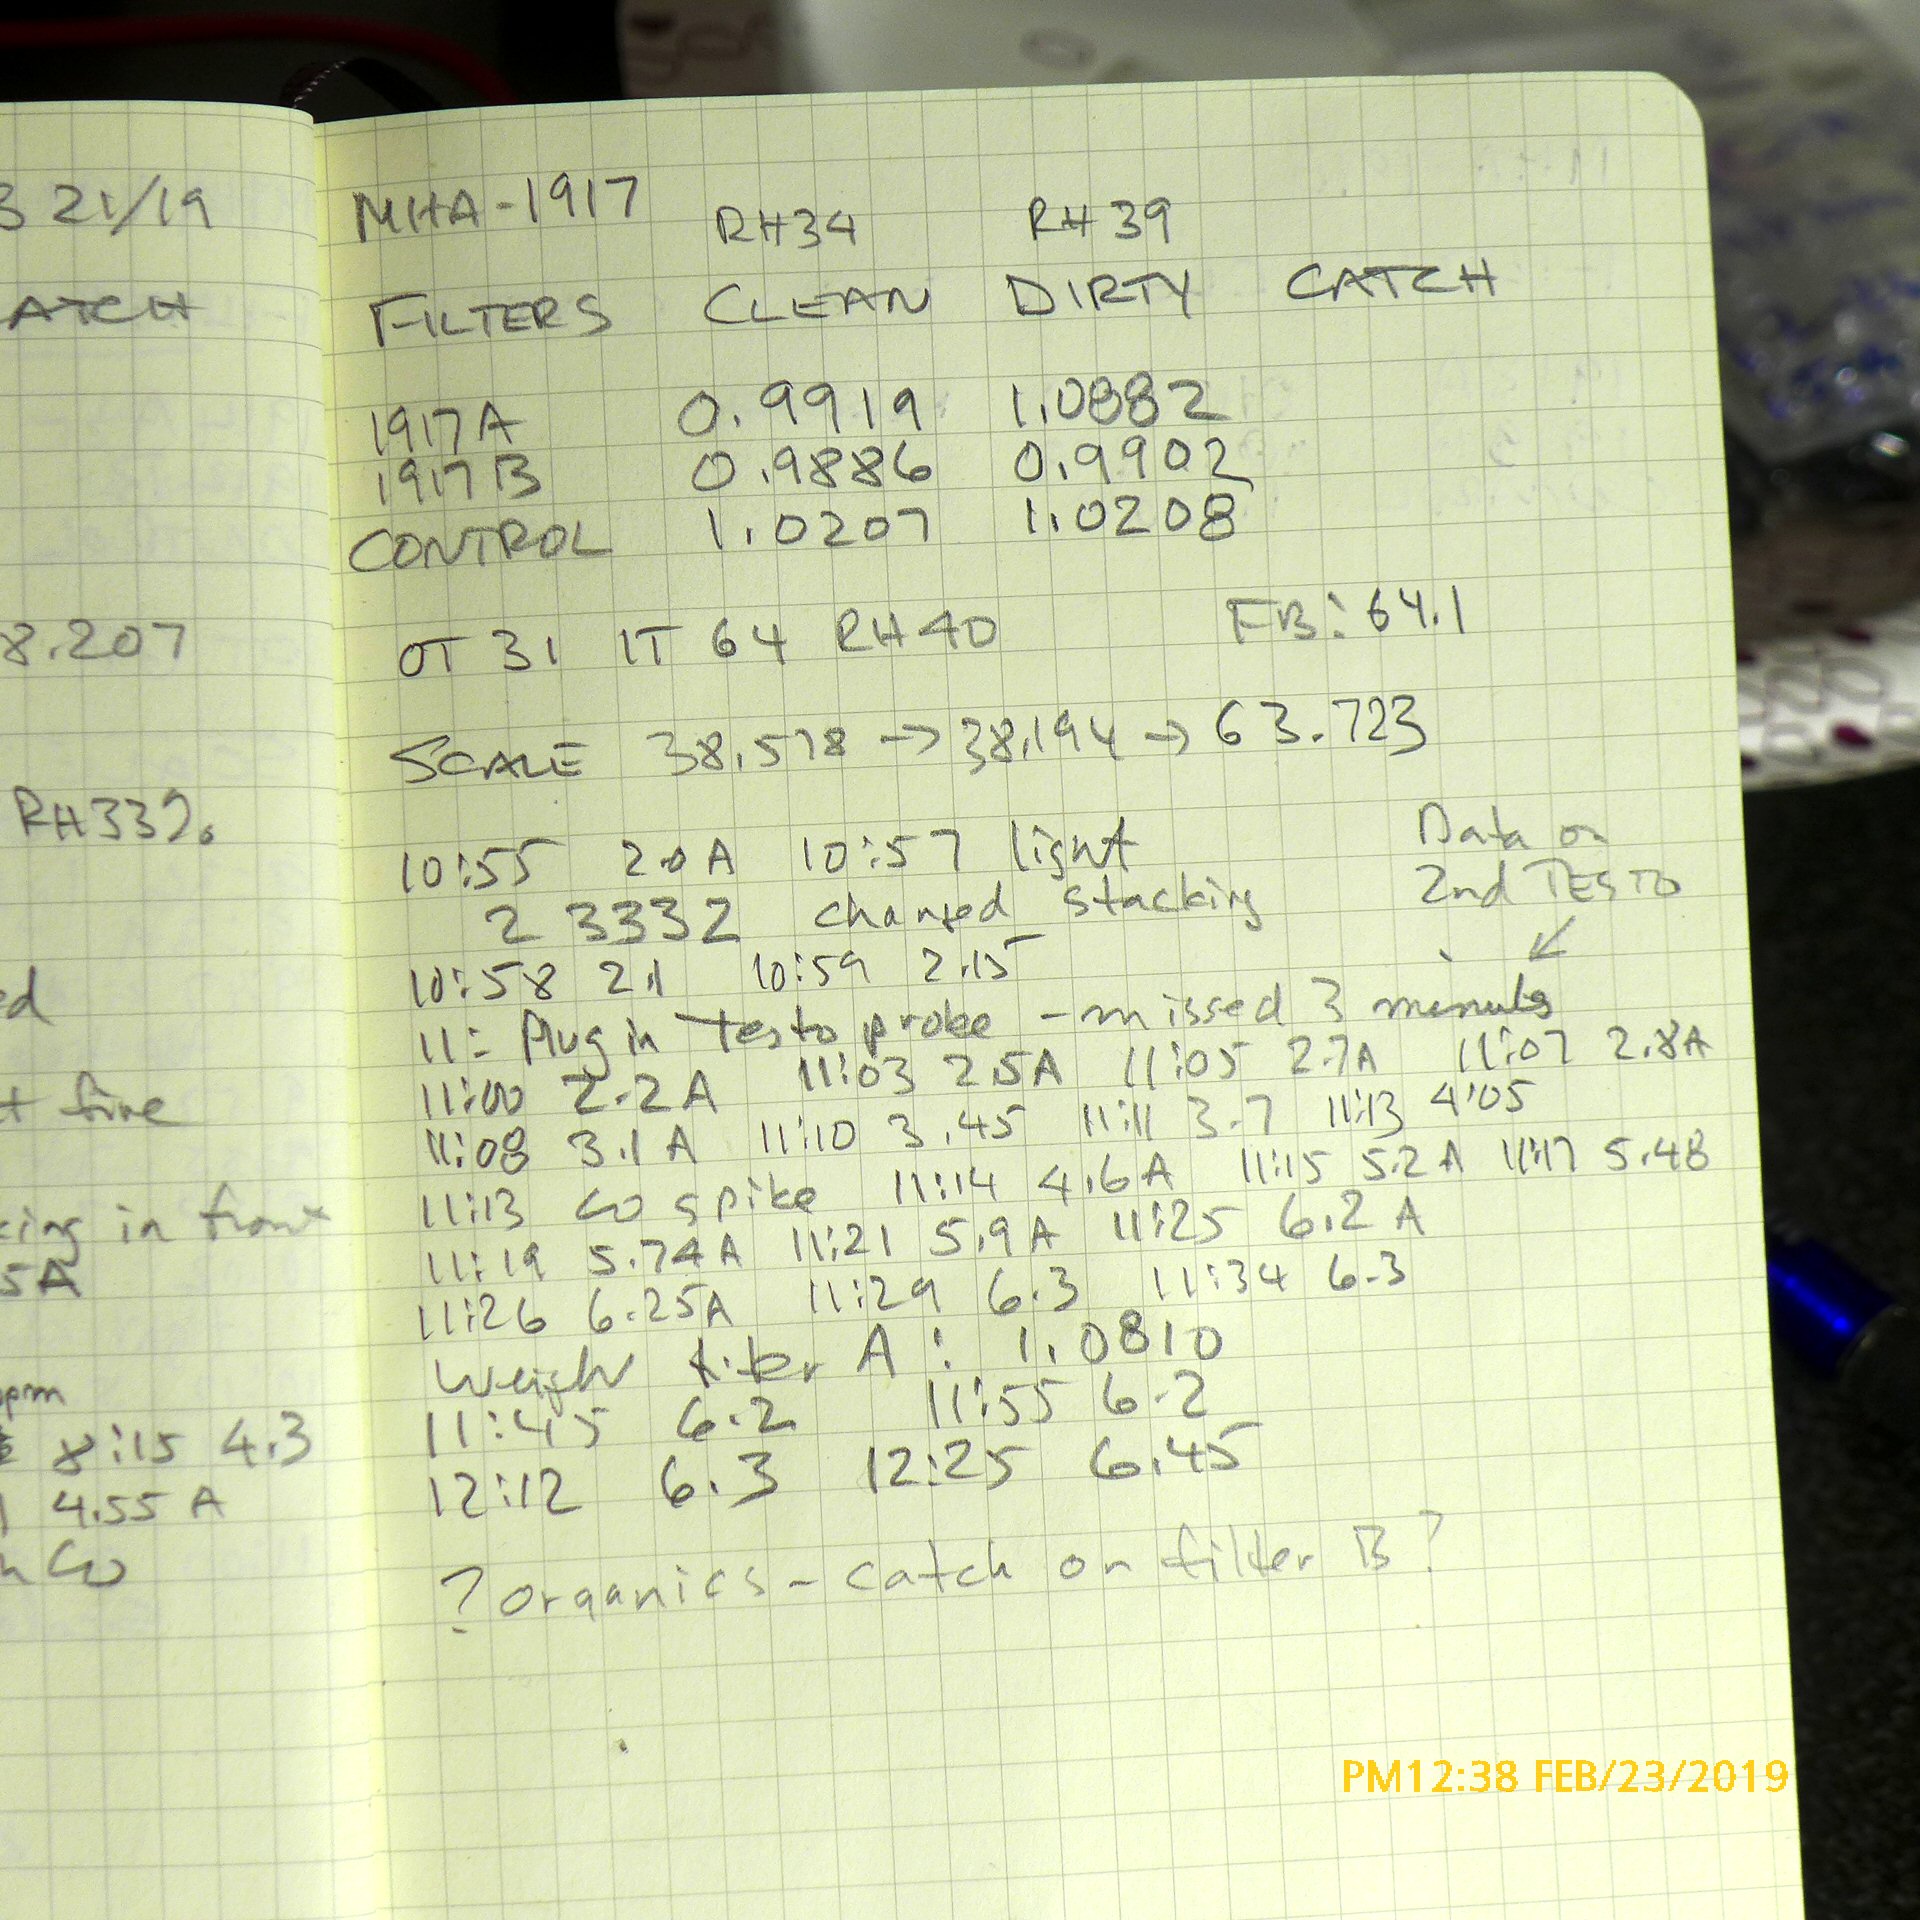 3 21/19
ATCH
8.207
RH33%
ed
t fire
king in front
5A
ppm
8:15 4.3
4.55 A
CO
MHA-1917
RH34 RH39
FILTERS CLEAN DIRTY CATCH
1917A 0.9919 1.0882
1917B 0.9886 0.9902
CONTROL 1.0207 1.0208
OT 31 IT 64 RH40 FB: 64.1
SCALE 38.578 → 38.194 → 63.723
Data on
2nd TESTO
10:55 2.0A 10:57 light
2 3332 changed stacking
10:58 2.1 10:59 2.15
11: Plug in Testo probe - missed 3 minutes
11:00 2.2A 11:03 2.5A 11:05 2.7A 11:07 2.8A
11:08 3.1A 11:10 3.45 11:11 3.7 11:13 4.05
11:13 CO spike 11:14 4.6A 11:15 5.2A 11:17 5.48
11:19 5.74A 11:21 5.9A 11:25 6.2A
11:26 6.25A 11:29 6.3 11:34 6.3
Weigh filter A: 1.0810
11:45 6.2 11:55 6.2
12:12 6.3 12:25 6.45
? organics - catch on filter B?
PM12:38 FEB/23/2019